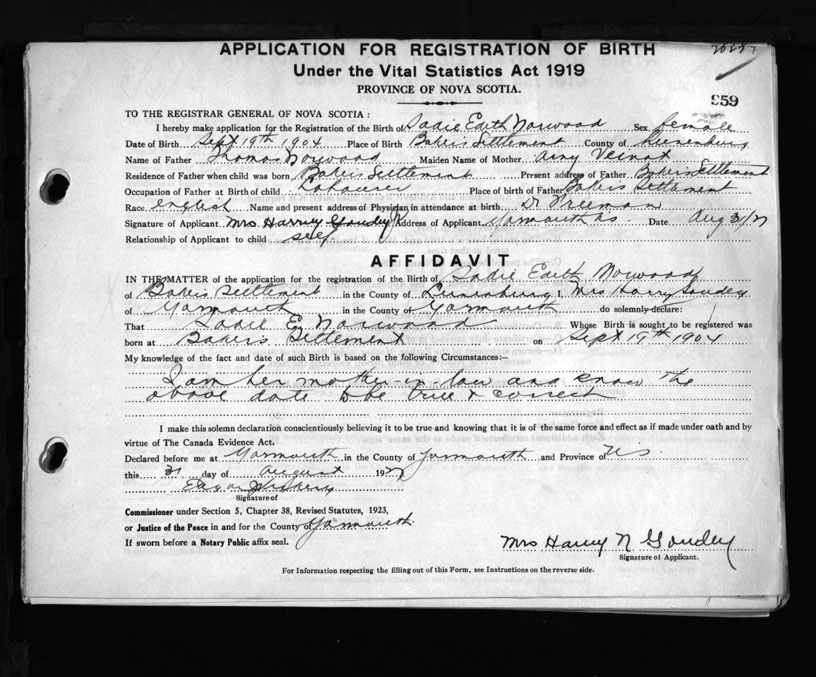 APPLICATION FOR REGISTRATION OF BIRTH
Under the Vital Statistics Act 1919
PROVINCE OF NOVA SCOTIA.
959
TO THE REGISTRAR GENERAL OF NOVA SCOTIA :
I hereby make application for the Registration of the Birth of Sadie Edith Norwood Sex female
Date of Birth Sept 19th 1904 Place of Birth Bakers Settlement County of Lunenburg
Name of Father Thomas Norwood Maiden Name of Mother Amy Veinot
Residence of Father when child was born, Bakers Settlement Present address of Father Bakers Settlement
Occupation of Father at Birth of child Labourer Place of birth of Father Bakers Settlement
Race English Name and present address of Physician in attendance at birth Dr Freeman
Signature of Applicant Mrs Harvey Goudey Address of Applicant Yarmouth Date Aug 31/27
Relationship of Applicant to child self
AFFIDAVIT
IN THE MATTER of the application for the registration of the Birth of Sadie Edith Norwood
of Bakers Settlement in the County of Lunenburg I, Mrs Harvey Goudey
of Yarmouth in the County of Yarmouth do solemnly declare:
That Sadie E. Norwood Whose Birth is sought to be registered was
born at Bakers Settlement on Sept 19th 1904
My knowledge of the fact and date of such Birth is based on the following Circumstances:—
I am her mother-in-law and know the
above date to be true & correct
I make this solemn declaration conscientiously believing it to be true and knowing that it is of the same force and effect as if made under oath and by
virtue of The Canada Evidence Act.
Declared before me at Yarmouth in the County of Yarmouth and Province of N.S.
this 31 day of August 1927
Signature of
Commissioner under Section 5, Chapter 38, Revised Statutes, 1923,
or Justice of the Peace in and for the County of Yarmouth.
If sworn before a Notary Public affix seal.
Mrs Harvey N Goudey
Signature of Applicant.
For Information respecting the filling out of this Form, see Instructions on the reverse side.